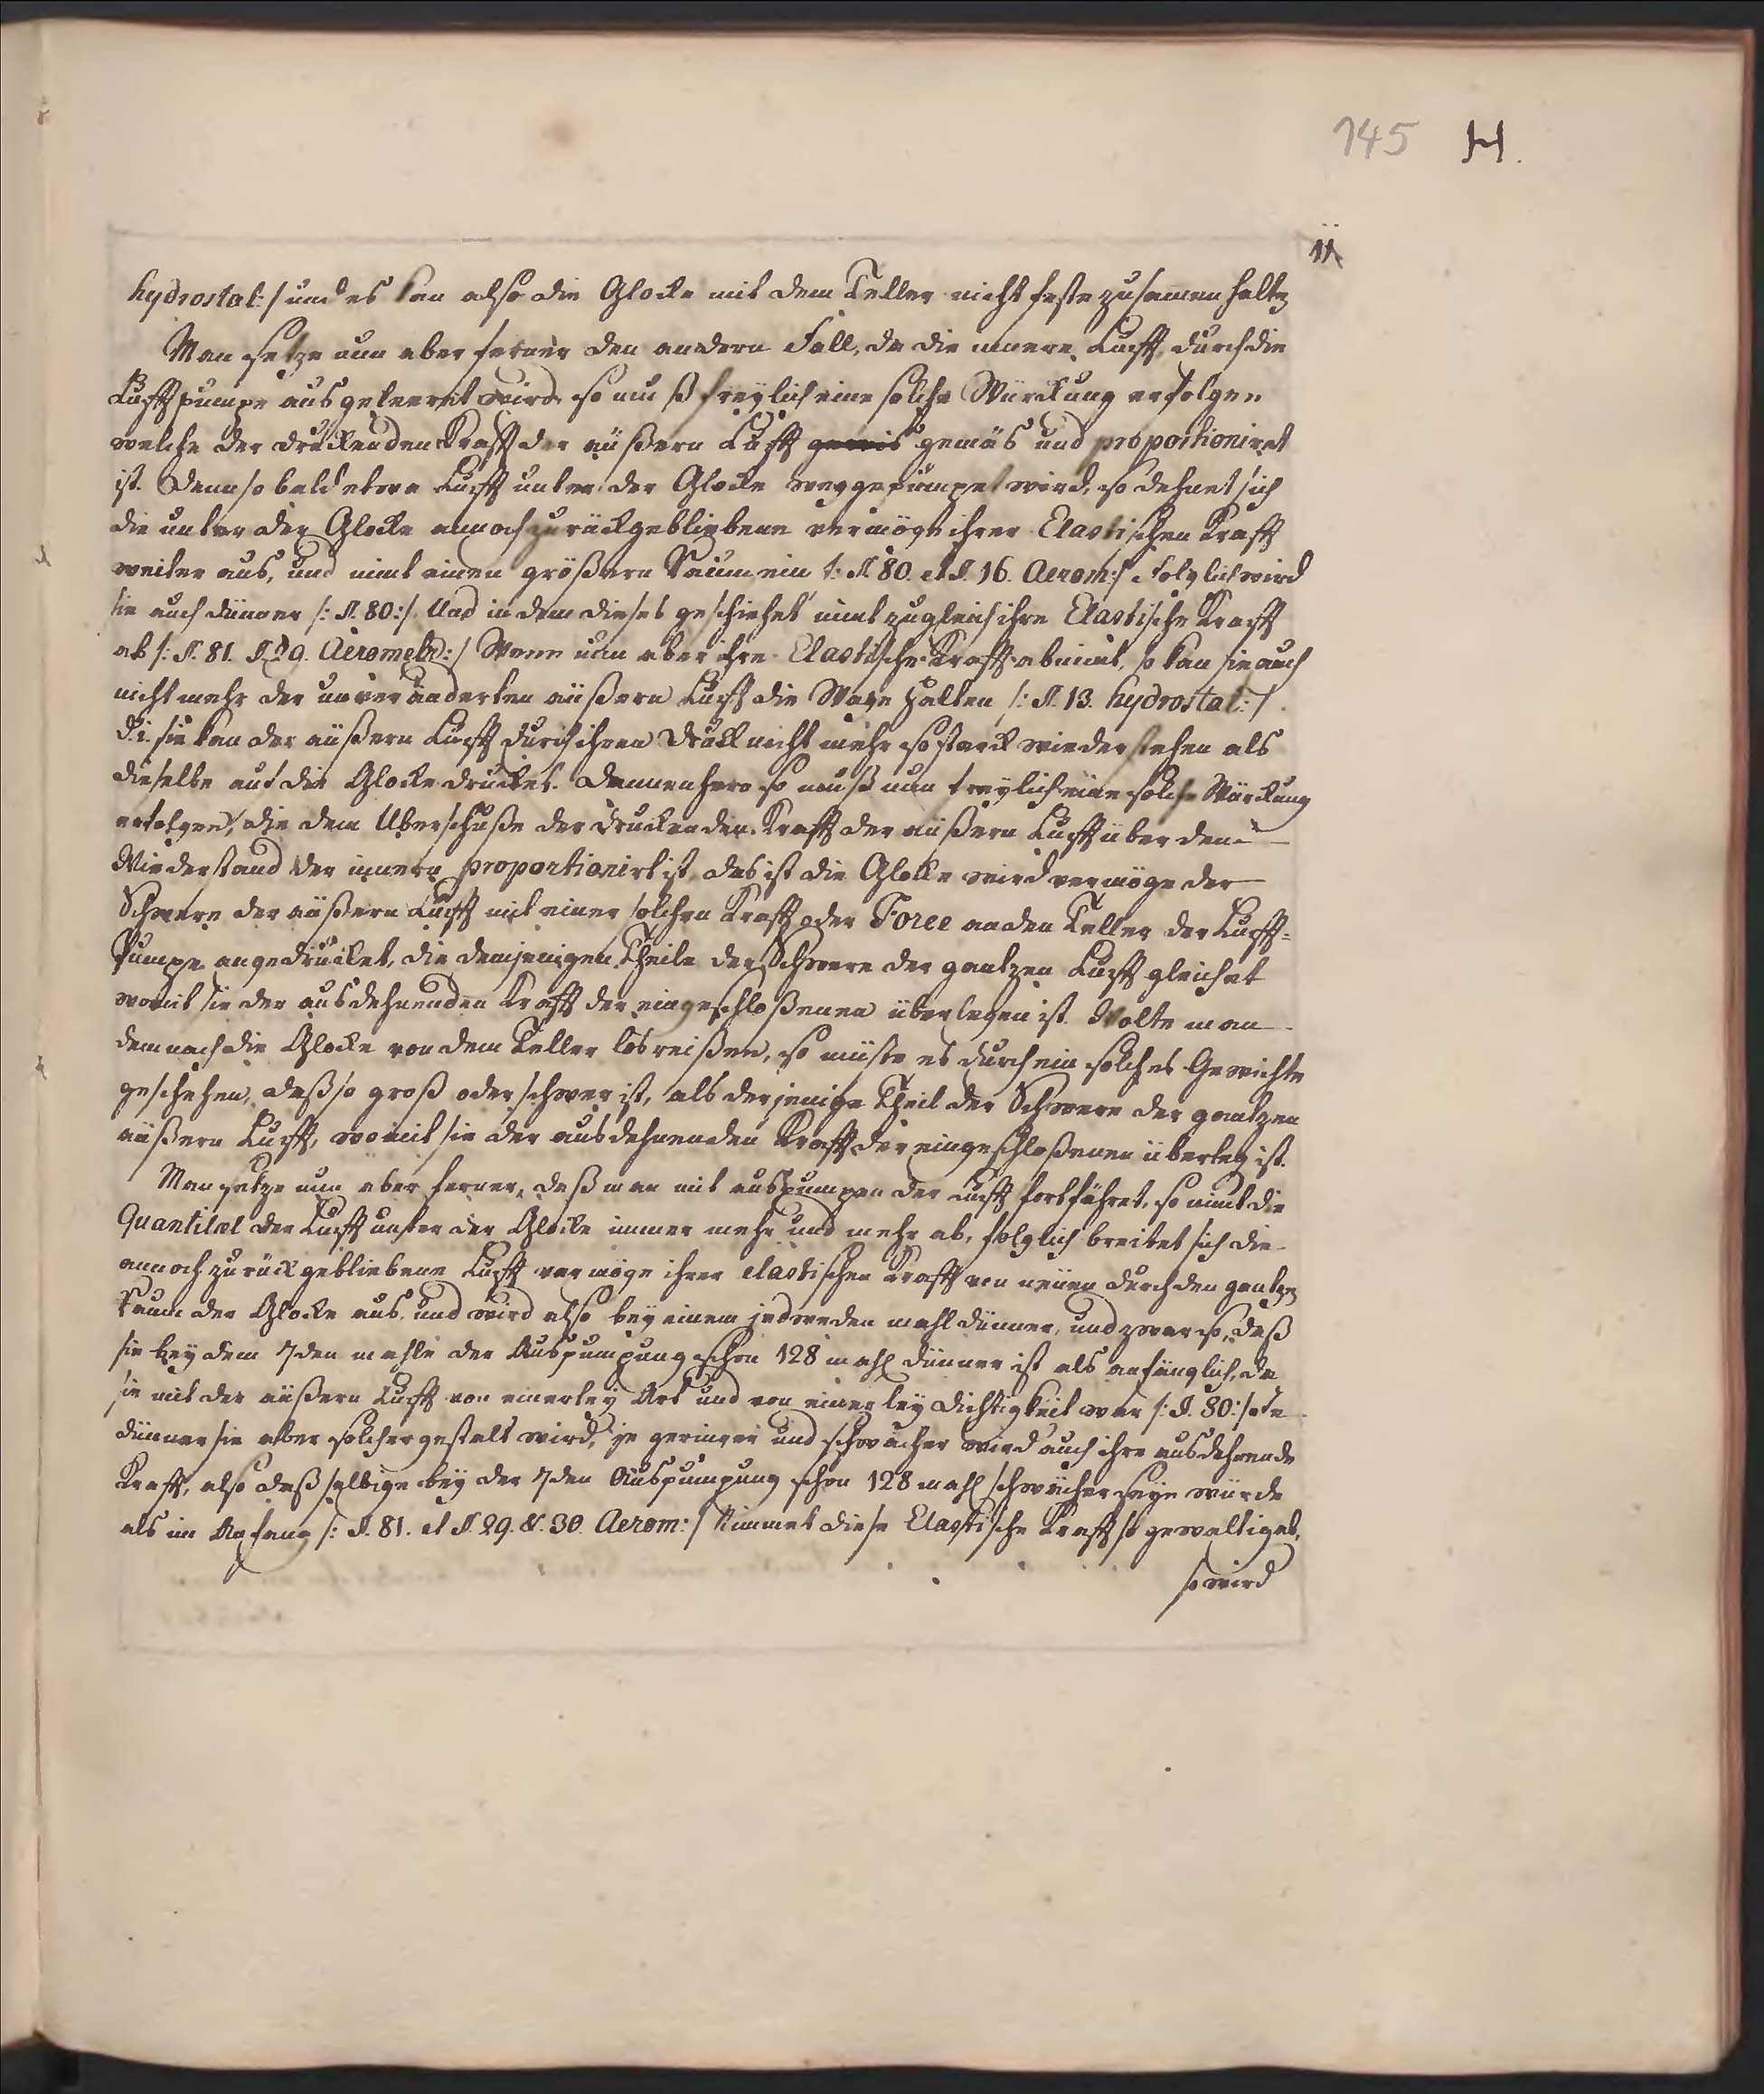 145 H.
11
hydrostat:/ und es kan also die Glocke mit dem Teller nicht feste zusammen halten
Man setze nun aber ferner den andern Fall, da die innere Lufft durch die
Lufftpumpe ausgeleeret wird, so muß freylich eine solche Würckung erfolgen
welche der druckenden Krafft der äußern Lufft gewis gemäs und proportioniret
ist. Denn so bald etwa Lufft unter der Glocke weggepumpet wird, so dehnet sich
die unter der Glocke annoch zurückgebliebene vermöge ihrer Elastischen Krafft
weiter aus, und nimt einen größern Raum ein /: §. 80. et §. 16. Aerom:/ Folglich wird
sie auch dünner /: §. 80:/. Und in dem dieses geschiehet nimt zugleich ihre Elastische Krafft
ab /: §. 81. §. 29. Aerometr:/ Wenn nun aber ihre Elastische Krafft abnimt, so kan sie auch
nicht mehr der unveränderten äußern Lufft die Wage halten /: §. 13. hydrostat:/.
d.i. sie kan der äußern Lufft durch ihren Druck nicht mehr so starck wiederstehen als
dieselbe auf die Glocke drucket. Dannenhero so muß nun freylich eine solche Würckung
erfolgen, die dem Uberschuße der druckenden Krafft der äußern Lufft über den
Wiederstand der innern proportionirt ist, das ist die Glocke wird vermöge der
Schwere der äußern Lufft mit einer solchen Krafft oder Force an den Teller der Lufft=
Pumpe angedrücket, die demjenigen Theile der Schwere der gantzen Lufft gleichet
womit sie der ausdehnenden Krafft der eingeschloßenen überlegen ist. Wolte man
demnach die Glocke von dem Teller losreißen, so müste es durch ein solches Gewichte
geschehen, daß so groß oder schwer ist, als derjenige Theil der Schwere der gantzen
äußern Lufft, womit sie der ausdehnenden Krafft der eingeschloßenen überleg ist.
Man setze nun aber ferner, daß man mit auspumpen der Lufft fortfähret, so nimt die
Quantitæt der Lufft unter der Glocke immer mehr und mehr ab, folglich breitet sich die
annoch zurückgebliebene Lufft vermöge ihrer elastischen Krafft von neuen durch den gantzen
Raum der Glocke aus, und wird also bey einem jedweden mahl dünner, und zwar so, daß
sie bey dem 7den mahle der Auspumpung schon 128 mahl dünner ist als anfänglich, da
sie mit der äußern Lufft von einerley Art und von einerley Dichtigkeit war /: §. 80:/ Je
dünner sie aber solchergestalt wird, je geringer und schwächer wird auch ihre ausdehnende
Krafft, also daß selbige bey der 7den Auspumpung schon 128 mahl schwächer seyn würde
als im Anfang /: §. 81. et §. 29. &. 30. Aerom:/ Nimmet diese Elastische Krafft so gewaltig ab,
so wird